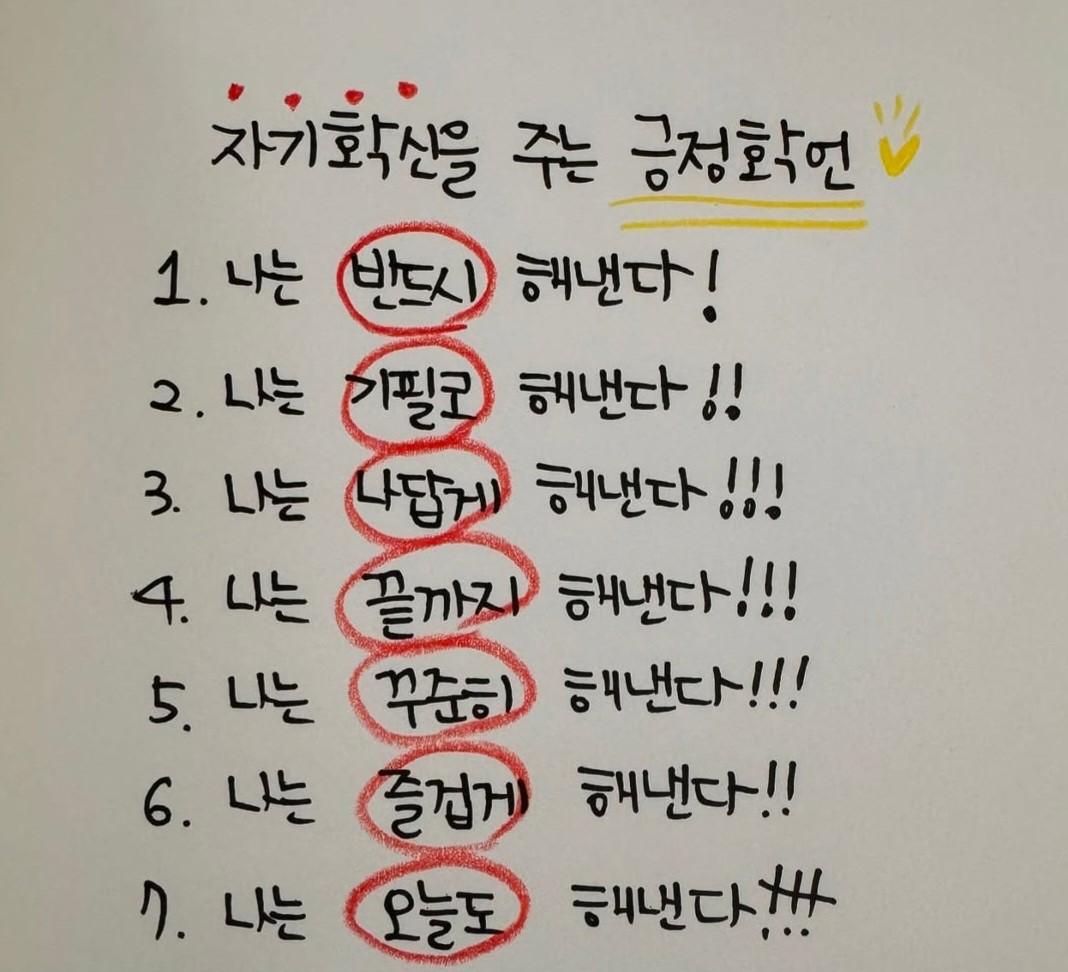 자기확신을 주는 긍정확언
1. 나는 반드시 해낸다!
2. 나는 기필코 해낸다!!
3. 나는 나답게 해낸다!!!
4. 나는 끝까지 해낸다!!!
5. 나는 꾸준히 해낸다!!!
6. 나는 즐겁게 해낸다!!
7. 나는 오늘도 해낸다!!!